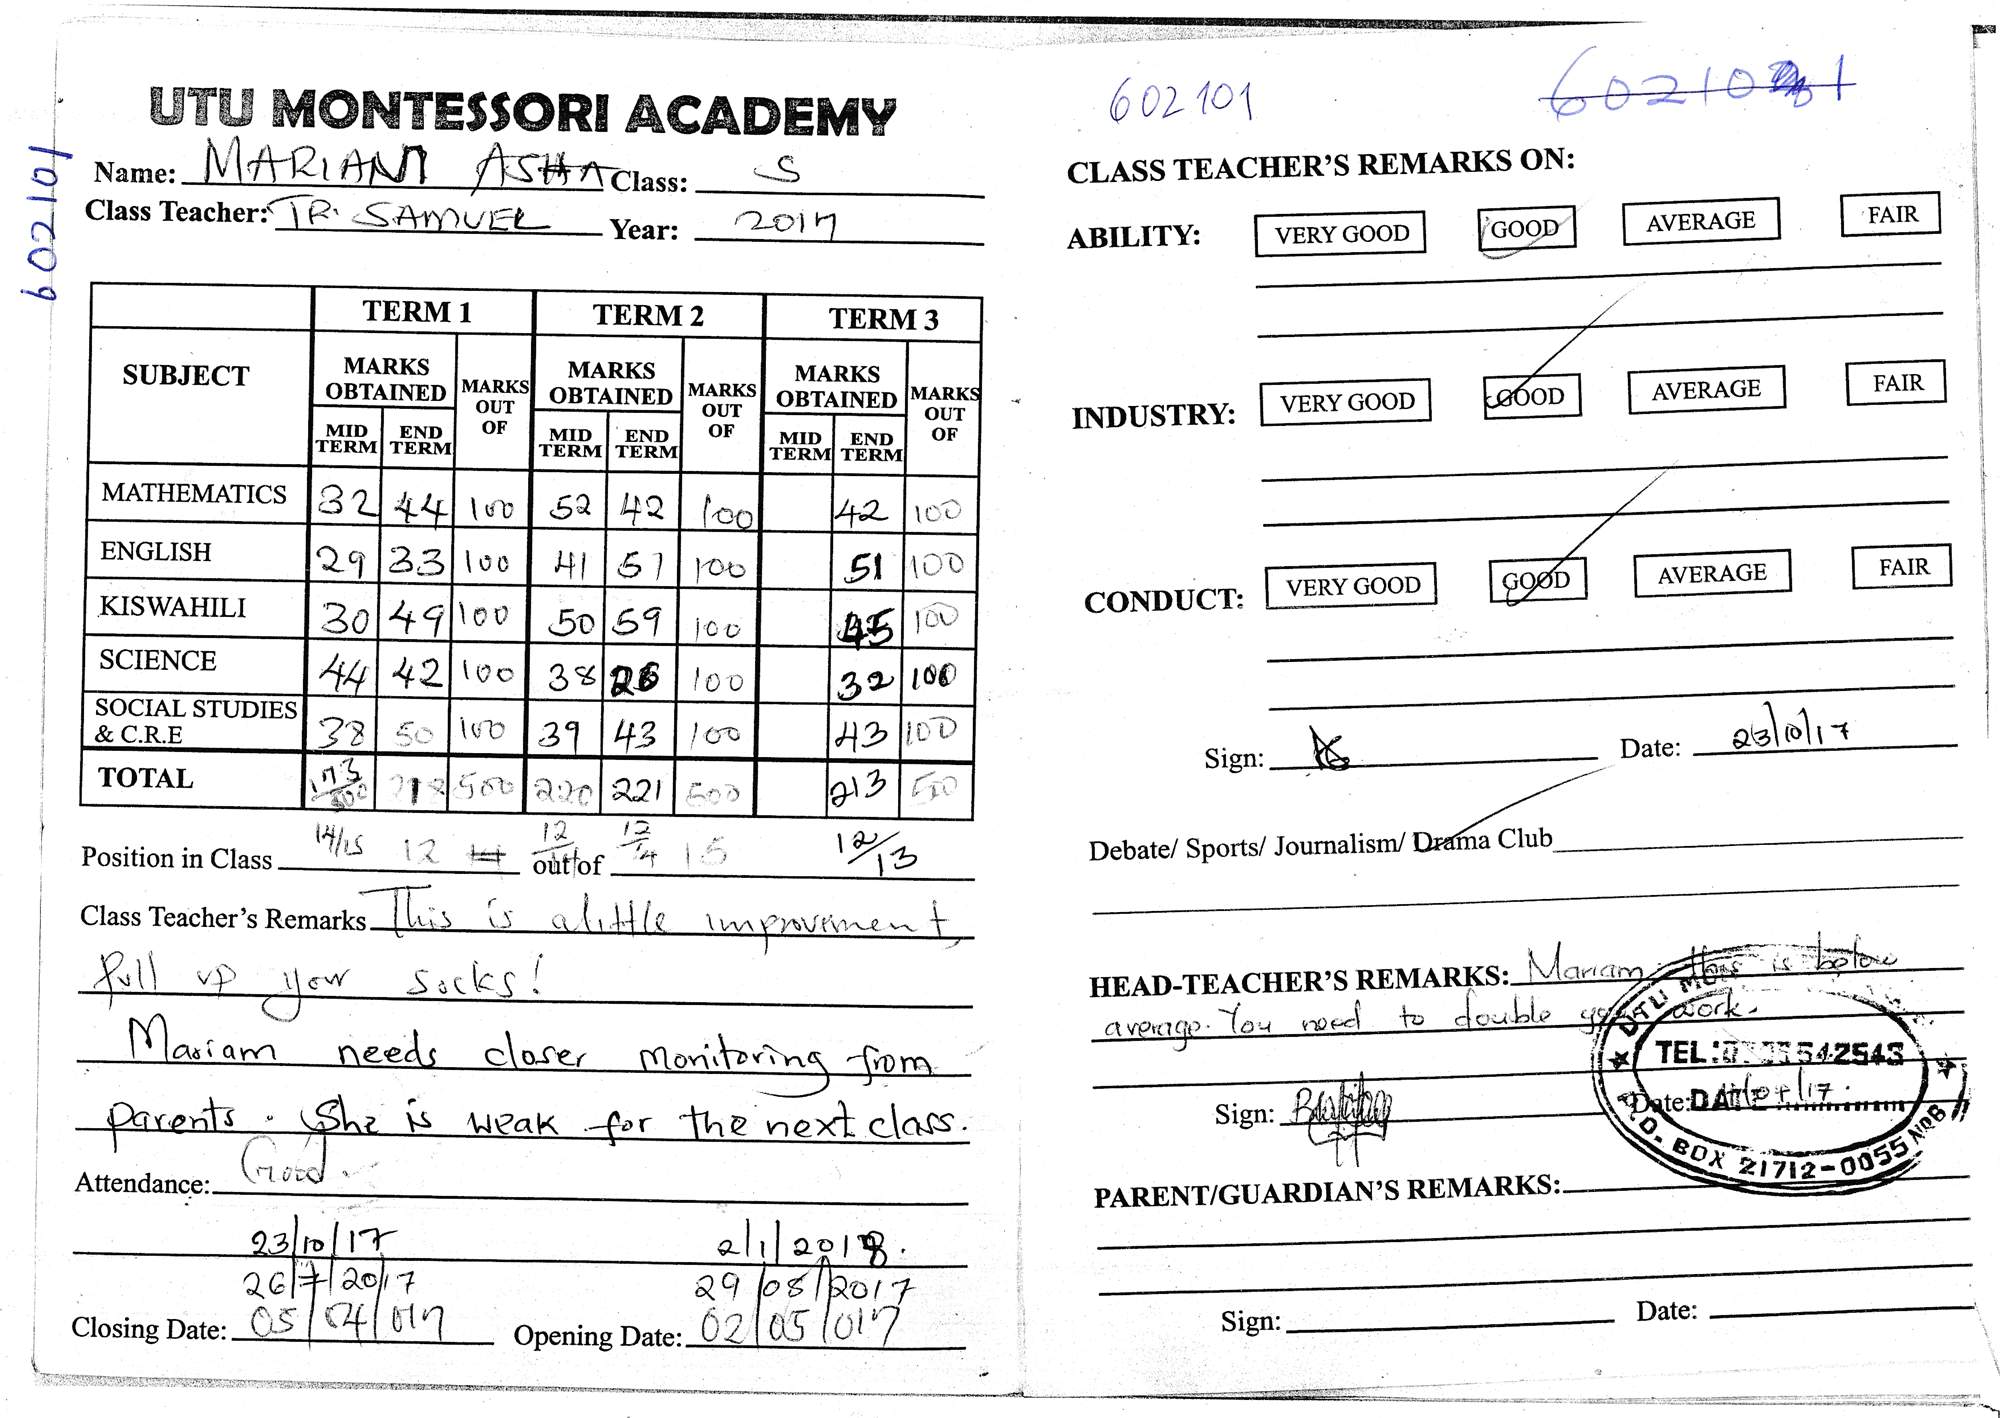 602101
UTU MONTESSORI ACADEMY
Name: MARIAM ASHA Class: 5
Class Teacher: TR. SAMUEL Year: 2017
SUBJECT TERM 1 TERM 2 TERM 3
MARKS OBTAINED MARKS OUT OF MARKS OBTAINED MARKS OUT OF MARKS OBTAINED MARKS OUT OF
MID TERM END TERM MID TERM END TERM MID TERM END TERM
MATHEMATICS 32 44 100 52 42 100 42 100
ENGLISH 29 33 100 41 57 100 51 100
KISWAHILI 30 49 100 50 59 100 45 100
SCIENCE 44 42 100 38 26 100 32 100
SOCIAL STUDIES & C.R.E 38 50 100 39 43 100 43 100
TOTAL 173/500 218 500 220 221 500 213 500
Position in Class 14/15 12 out of 12/14 15 12/13
Class Teacher's Remarks This is a little improvement,
pull up your socks!
Mariam needs closer monitoring from
parents. She is weak for the next class.
Attendance: Good.
23/10/17 2/1/2018.
26/7/2017 29/08/2017
Closing Date: 05/04/017 Opening Date: 02/05/017
602101
CLASS TEACHER'S REMARKS ON:
ABILITY: VERY GOOD GOOD AVERAGE FAIR
INDUSTRY: VERY GOOD GOOD AVERAGE FAIR
CONDUCT: VERY GOOD GOOD AVERAGE FAIR
Sign: Date: 23/10/17
Debate/ Sports/ Journalism/ Drama Club
HEAD-TEACHER'S REMARKS: Mariam this is below
average. You need to double your work.
Sign: Date:
UTU
TEL: 542543
DATE
P.O. BOX 21712-0055 NRB
PARENT/GUARDIAN'S REMARKS:
Sign: Date: